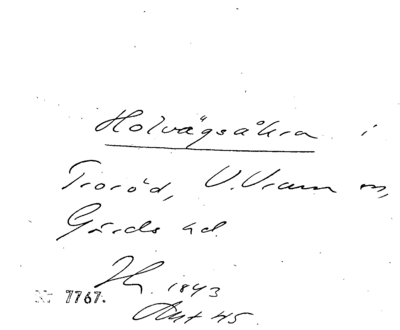 Holvägsåkra i
Troröd, V. Vram sn,
Gärds hd.
1843
Akt 45.
Nr 7767.